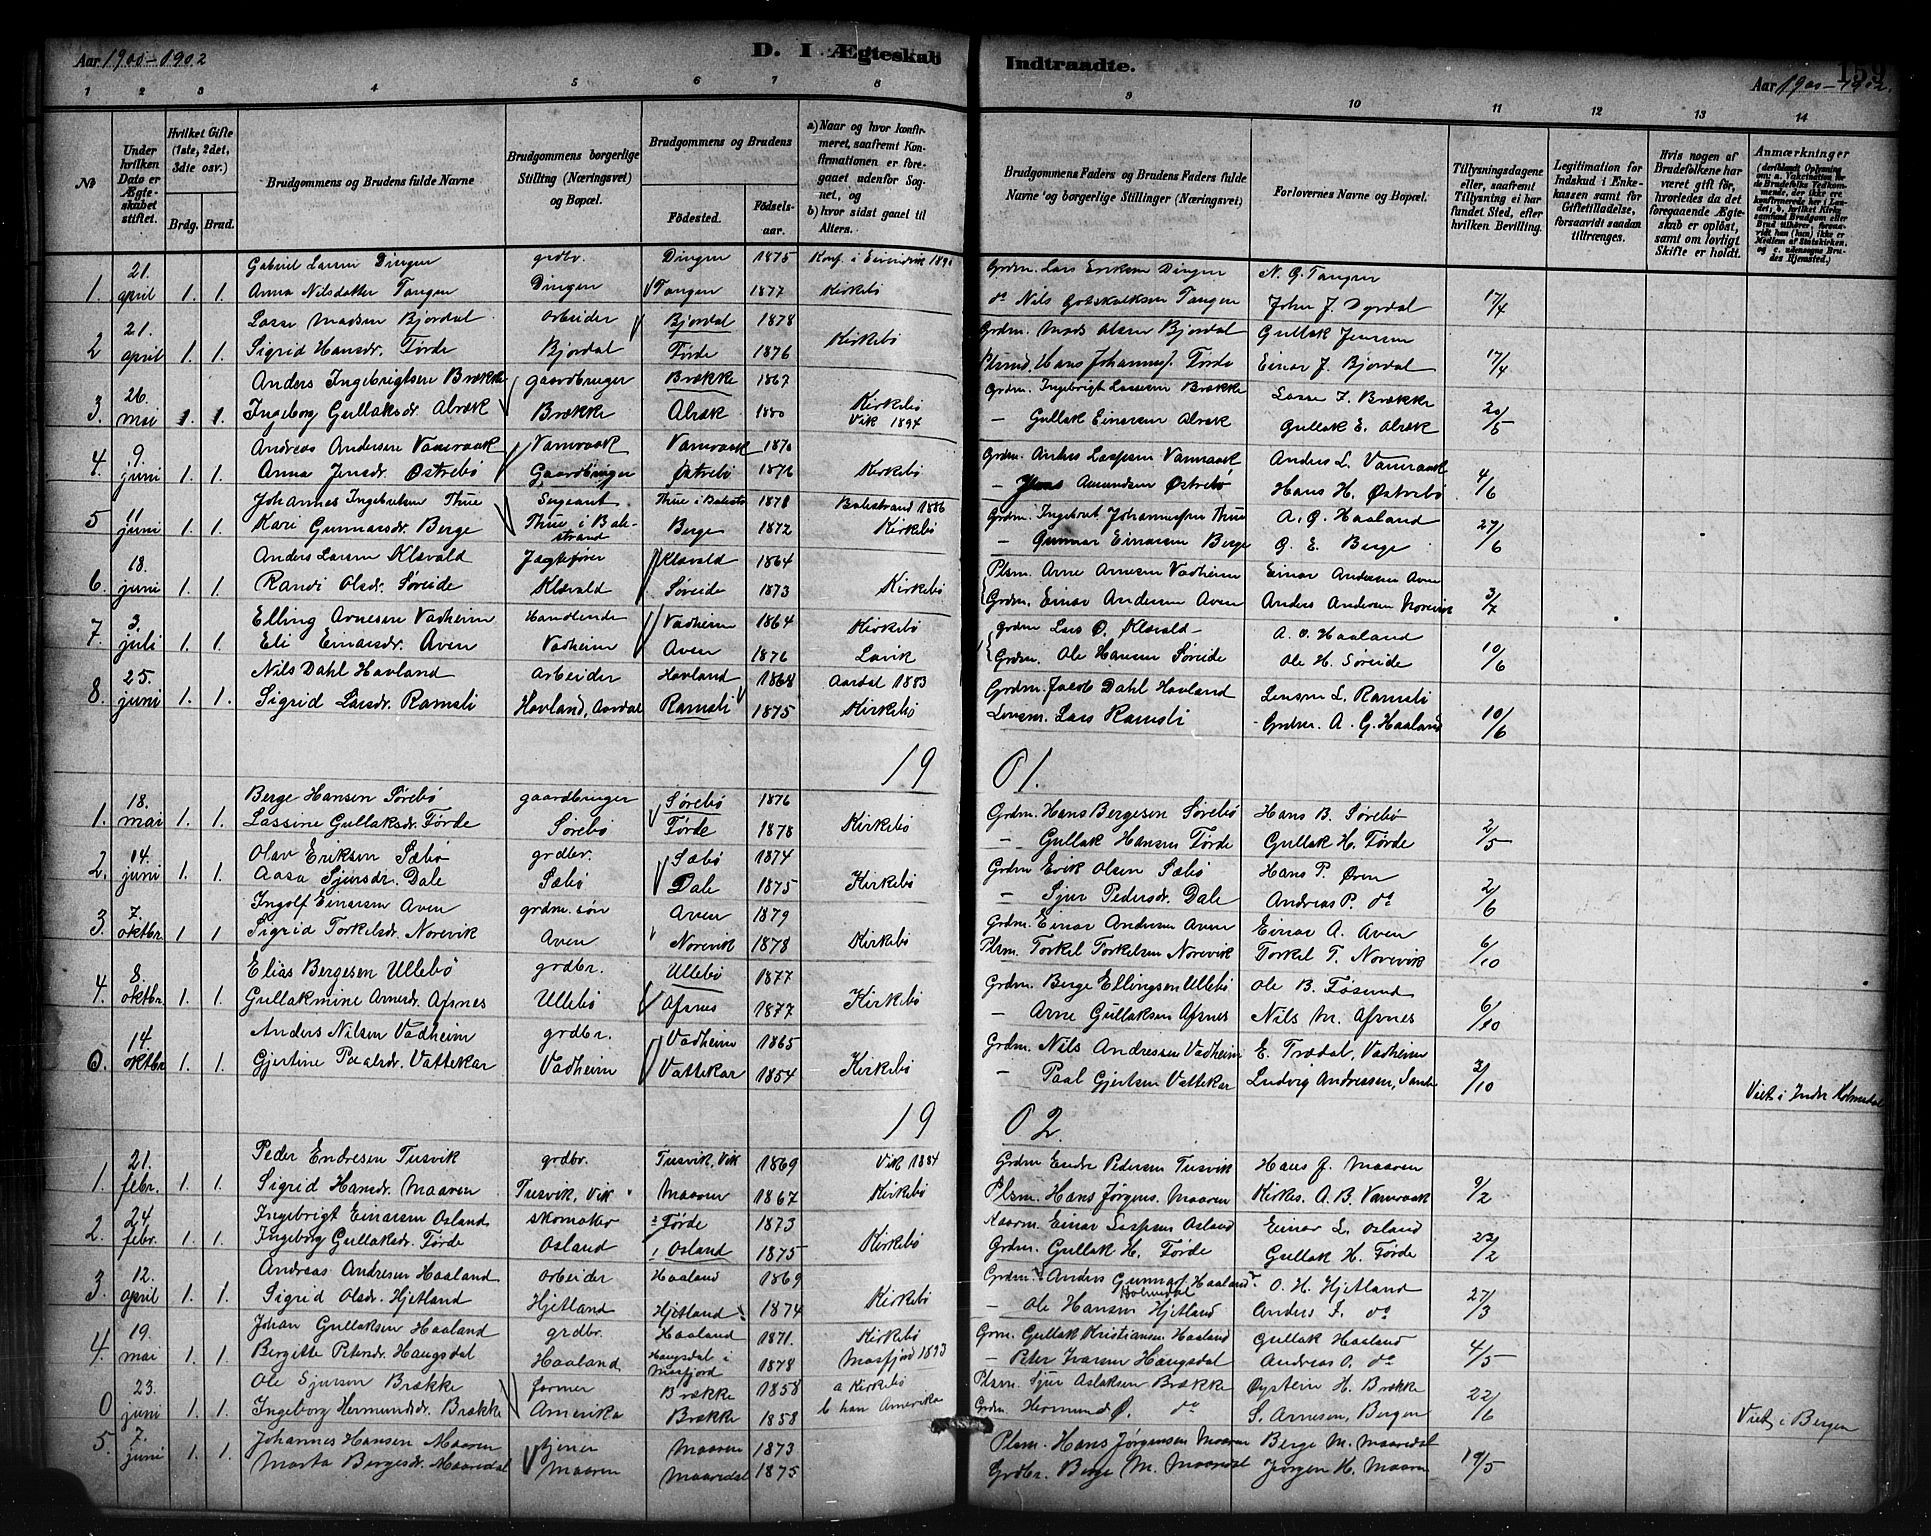 Aar 1900-1902
D. I Ægteskab Indtraadte.
159
Aar 1900-1902.
1 2 3 4 5 6 7 8 9 10 11 12 13 14
No
Under hvilken Dato er Ægteskabet stiftet.
Hvilket Gifte (1ste, 2det, 3die osv.)
Brdg. Brud.
Brudgommens og Brudens fulde Navne
Brudgommens borgerlige Stilling (Næringsvei) og Bopæl.
Brudgommens og Brudens
Fødested. Fødselsaar.
a) Naar og hvor konfirmeret, saafremt Konfirmationen er foregaaet udenfor Sognet, og
b) hvor sidst gaaet til Alters.
Brudgommens Faders og Brudens Faders fulde Navne og borgerlige Stillinger (Næringsvei)
Forlovernes Navne og Bopæl.
Tillysningsdagene eller, saafremt Tillysning ei har fundet Sted, efter hvilken Bevilling.
Legitimation for Indskud i Enkekassen samt for Giftetilladelse, forsaavidt saadan tiltrænges.
Hvis nogen af Brudefolkene har været gift før, hvorledes da det foregaaende Ægteskab er opløst, samt om lovligt Skifte er holdt.
Anmærkninger
Gabriel Larsen Dingen grdbr. Dingen 1875 Konf. i Eivindvik Grdm. Lars Eriksen Dingen N. G. Tangen
1. 21. april 1. 1. Anna Nilsdatter Tangen Dingen Tangen 1877 Kirkebø do Nils Gotskalksen Tangen John J. Dyrdal 17/4
Lasse Madsen Bjordal arbeider Bjordal 1878 Grdm. Mads Olsen Bjordal Gullak Jensen
2 21. april 1. 1. Sigrid Hansdr. Førde Bjordal Førde 1876 Kirkebø Plsmd. Hans Johannes. Førde Einar J. Bjordal 17/4
Anders Ingebrigtsen Brække gaardbruger Brække 1867 Grdm. Ingebrigt Lassesen Brække Lasse I. Brække
3. 26. mai 1. 1. Ingeborg Gullaksdr. Alræk Brække Alræk 1880 Kirkebø Vik 1894 - Gullak Einarsen Alræk Gullak E. Alræk 20/5
Andreas Andersen Vamraak Vamraak Vamraak 1870 Grdm. Anders Vamraak Anders L. Vamraak
4. 9. juni 1. 1. Anna Jensdr. Østrebø Gaardbruger Østrebø 1876 Kirkebø - Jens Amundsen Østrebø Hans H. Østrebø 4/6
Johannes Ingebretsen Thue Sergeant Thue i Balestr. 1878 Balestrand 1886 Grdm. Ingebret Johannessen Thue A. G. Haaland
5 11 juni 1. 1. Kari Gunnarsdr. Berge Thue i Balestrand Berge 1872 Kirkebø - Gunnar Einarsen Berge G. E. Berge 27/6
Anders Larsen Klævold Jægtefører Klævold 1864 Plsm. Arne Arnesen Vadheim Einar Andersen Aven
6. 18. juni 1. 1. Randi Olsdr. Søreide Klævold Søreide 1873 Kirkebø Grdm. Einar Andersen Aven Anders Andersen Norevik 3/7
Elling Arnesen Vadheim Handlende Vadheim 1864 Kirkebø Grdm Lars O. Klævold A. O. Haaland
7. 3. juli 1. 1. Eli Einarsdr. Aven Vadheim Aven 1876 Lavik Grdm. Ole Hansen Søreide Ole H. Søreide 10/6
Nils Dahl Hovland Arbeider Hovland 1868 Aardal 1883 Grdm. Jacob Dahl Hovland Lensm L. Ramsli
8. 25. juni 1. 1. Sigrid Larsdr. Ramsli Hovland, Aardal Ramsli 1875 Kirkebø Lensm. Lars Ramsli Grdm. A. G. Haaland 10/6
19 01.
Berge Hansen Sørebø gaardbruger Sørebø 1876 Grdm. Hans Bergesen Sørebø Hans B. Sørebø
1. 18. mai 1. 1. Lassine Gullaksdr. Førde Sørebø Førde 1878 Kirkebø - Gullak Hansen Førde Gullak H. Førde 2/5
Olav Eriksen Sæbø grdbr. Sæbø 1874 Grdm Erik Olsen Sæbø Hans P. Øren
2. 14. juni 1. 1. Aasa Sjursdr. Dale Sæbø Dale 1875 Kirkebø - Sjur Pedersdr. Dale Andreas P. do 2/6
Ingolf Einarsen Aven grdm. søn Aven 1879 Grdm. Einar Andersen Aven Einar A. Aven
3. 7. oktbr. 1 1 Sigrid Torkelsdr. Norevik Aven Norevik 1878 Kirkebø Plsm. Torkel Torkelsen Norevik Torkel T. Norevik 6/10
Elias Bergesen Ullebø grdbr. Ullebø 1877 Grdm. Berge Ellingsen Ullebø Ole B. Føsund
4. 8. oktbr. 1. 1. Gullakmine Arnesdr. Afsnes Ullebø Afsnes 1877 Kirkebø - Arne Gullaksen Afsnes Nils M. Afsnes 6/10
Anders Nilsen Vadheim grdbr. Vadheim 1865 Grdm. Nils Andressen Vadheim E. Trædal, Vadheim
0. 14. oktbr 1. 1. Gjertine Paalsdr. Vattekar Vadheim Vattekar 1854 Kirkebø - Paal Gjertsen Vattekar Ludvig Andreassen, 3/10 Viet i Indre Holmedal
19 02.
Peder Endresen Tusvik grdbr. Tusvik, Vik 1869 Vik 1884 Grdm Endre Pedersen Tusvik Hans J. Maaren
1. 21. febr. 1. 1. Sigrid Hansdr. Maaren Tusvik, Vik Maaren 1867 Kirkebø Plsm. Hans Jørgens. Maaren Kirkes. A. B. Vamraak 9/2
Ingebrigt Einarsen Osland skomaker Førde 1873 Einar Osland Einar L. Osland
2. 24 febr. 1. 1. Ingeborg Gullaksdr. Førde Osland Osland 1875 Kirkebø Grdm. Gullak H. Førde Gullak H. Førde 22/2
Andreas Andresen Haaland arbeider Haaland 1869 Grdm. Anders Gunnars. Haaland Holmedal O. H. Hjetland
3 12. april 1. 1. Sigrid Olsdr. Hjetland Hjetland Hjetland 1874 Kirkebø - Ole Hansen Hjetland Anders I. do 27/3
Johan Gullaksen Haaland grdbr. Haaland 1871. Kirkebø Grm. Gullak Kristiansen Haaland Gullak Haaland
4. 19. mai 1. 1. Bergitte Petersdr. Haugsdal Haaland Haugsdal i Masfjord 1878 Masfjord 1893 - Peter Ivarsen Haugsdal Andreas O. do 4/5
Ole Sjursen Brække farmer Brække 1858 a Kirkebø Plsm. Sjur Aslaksen Brække Øystein H. Brække
0 23. juni 1. 1. Ingeborg Hermundsdr. Brække Amerika Brække 1858 b han Amerika Grdm. Hermund Ø. do S. Arnesen, Bergen 22/6 Viet i Bergen
Johannes Hansen Maaren tjener Maaren 1873 Plsm. Hans Jørgensen Maaren Berge M. Maaredal
5. 7. juni 1. 1. Marta Bergesdr. Maaredal Maaren Maaredal 1875 Grdbr. Berge M. Maaredal Jørgen H. Maaren 19/5